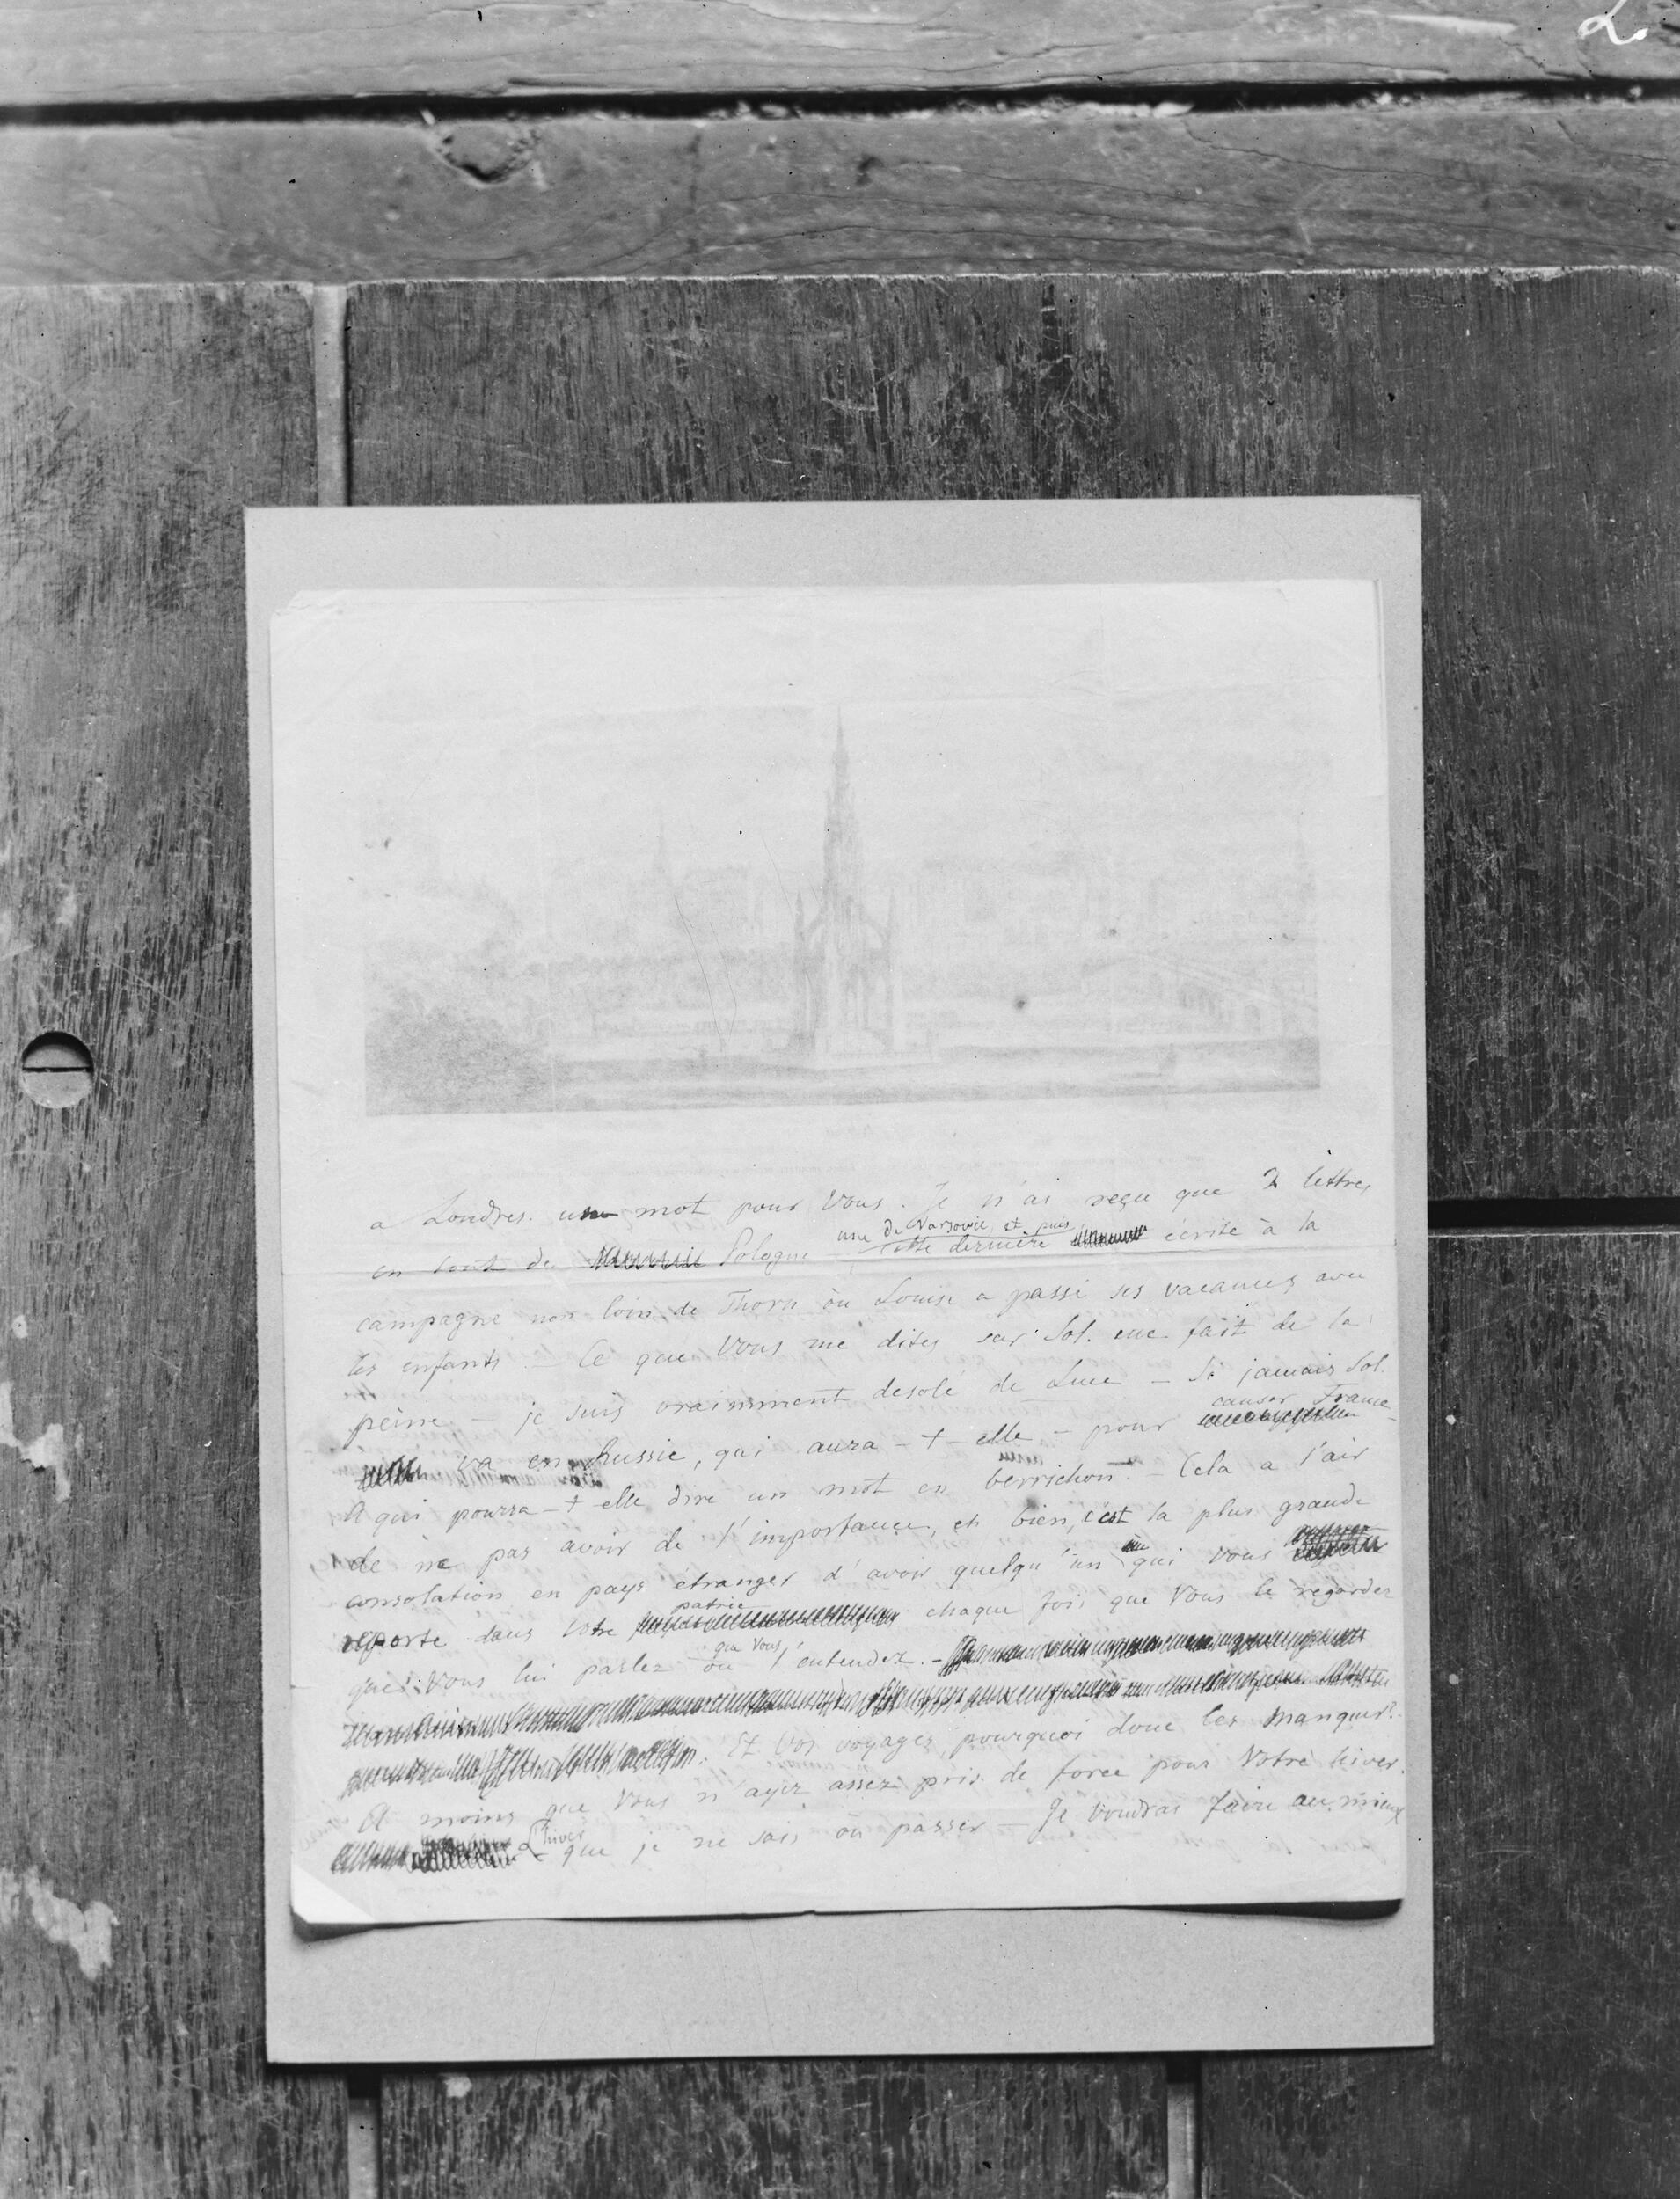 2.
a Londres. un mot pour Vous. Je n'ai reçu que 2 lettres
en tout de Pologne une de Varsovie, et puis cette dernière écrite à la
campagne non loin de Thorn où Louise a passé ses vacances avec
les enfants. – Ce que Vous me dites sur Sol. me fait de la
peine – je suis vraimment desolé de Luce – Si jamais Sol.
va en Russie, qui aura-t-elle – pour causer France –
A qui pourra-t-elle dire un mot en berrichon. – Cela a l'air
de ne pas avoir de l'importance, eh bien, c'est la plus grande
consolation en pays étranger d'avoir quelqu'un qui Vous
reporte dans Votre patrie chaque fois que Vous le regardez
que Vous lui parlez ou que Vous l'entendez. –
Et Vos voyages, pourquoi donc les manquer?
A moins que Vous n'ayez assez pris de force pour Votre hiver.
L'hiver que je ne sais où passer – Je voudrai faire au mieux